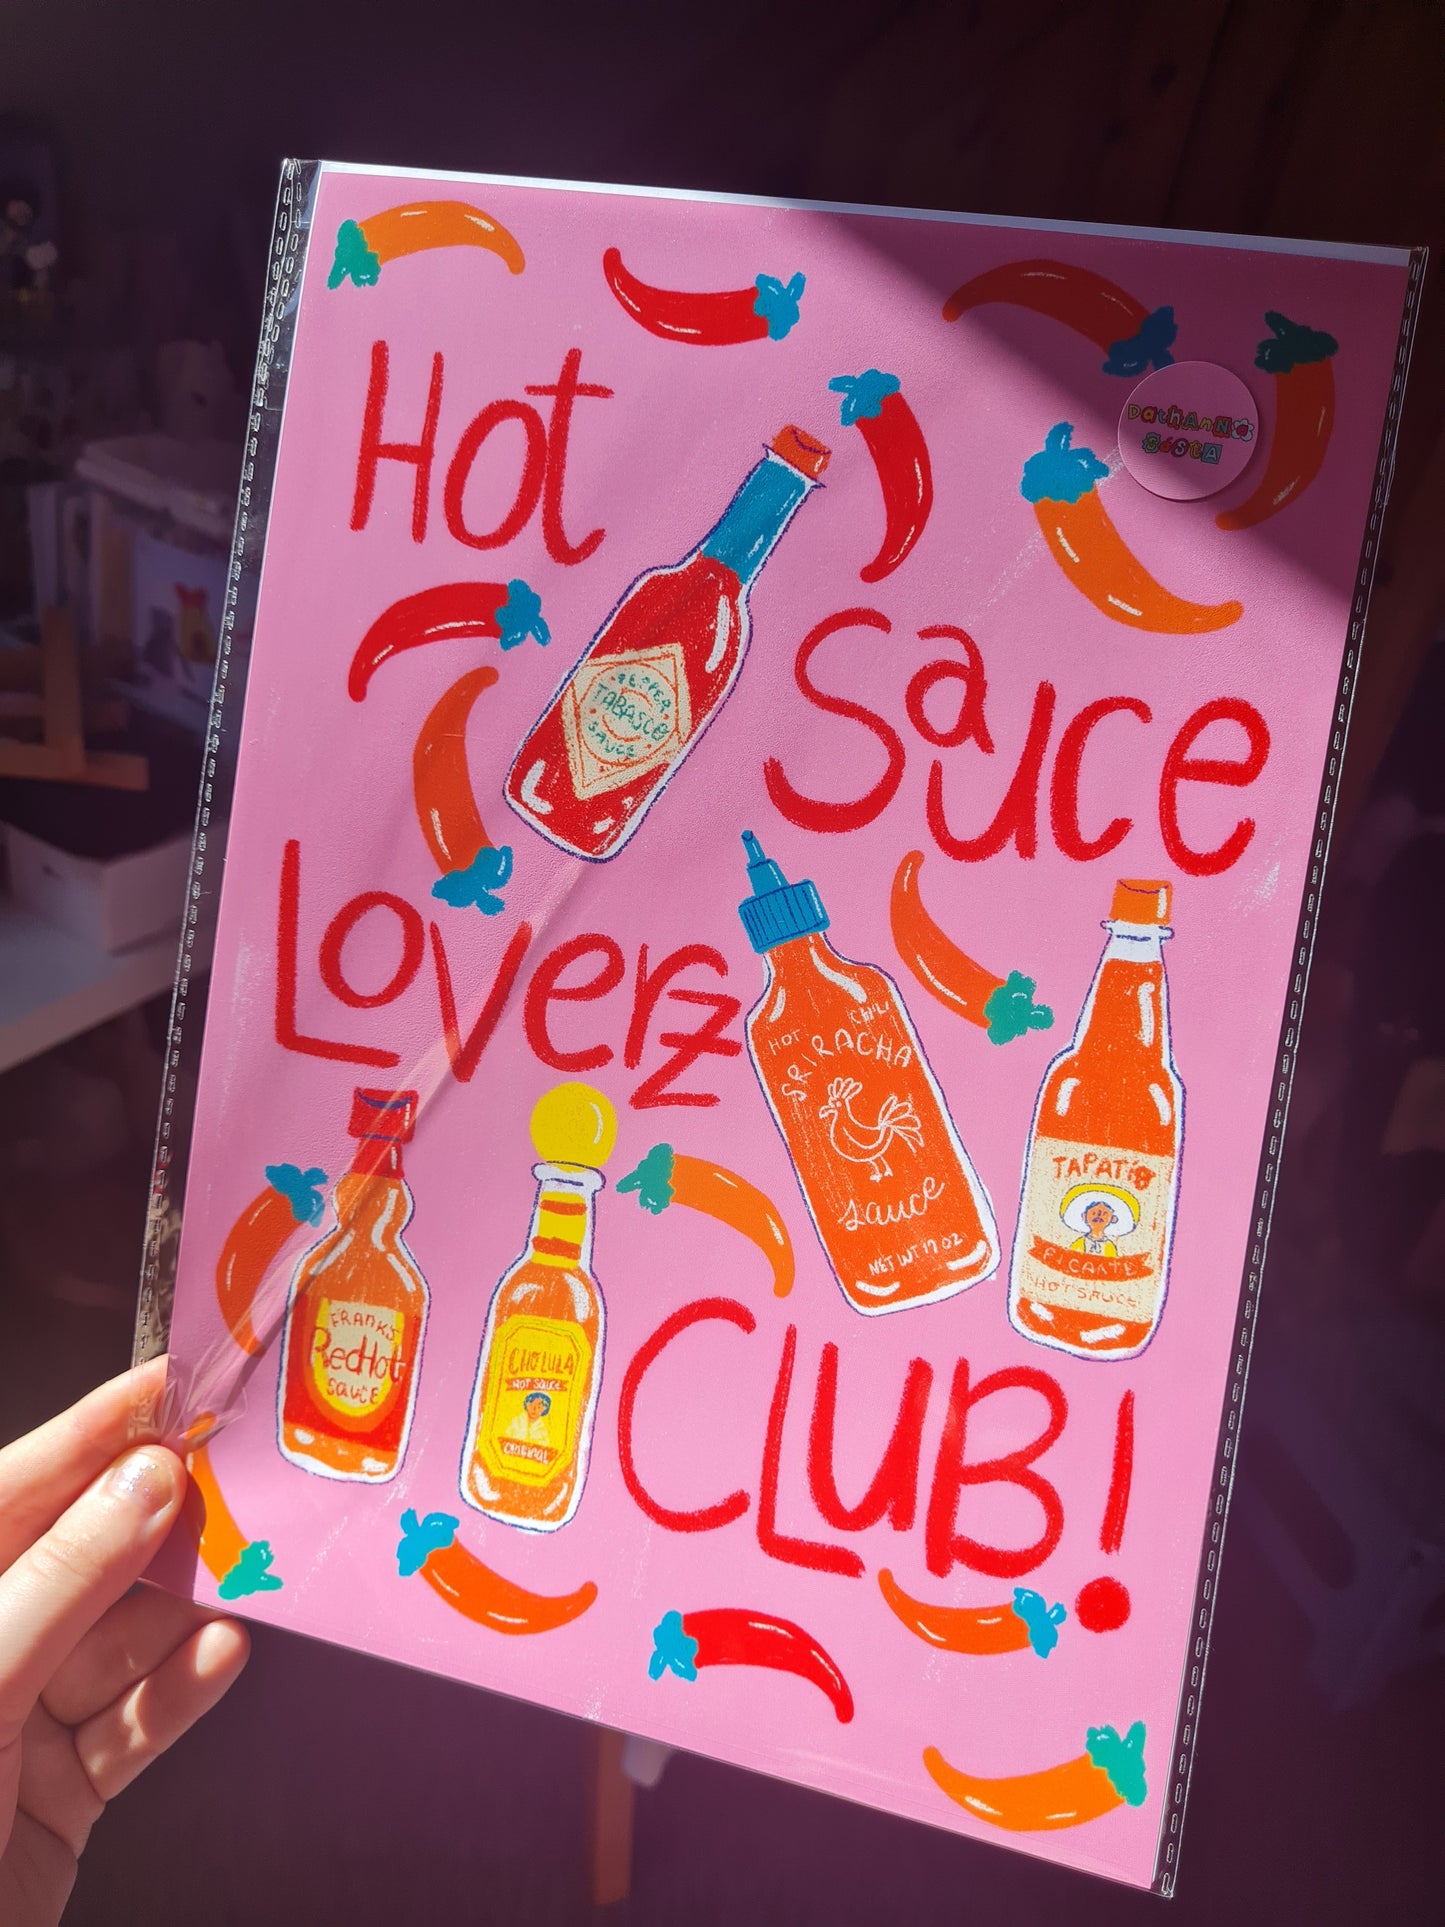 Hot
Sauce
Loverz
CLUB!
DathAnNa
CóstA
PEPPER
TABASCO
SAUCE
HOT CHILI
SRIRACHA
Sauce
NET WT 17 OZ
TAPATIO
PICANTE
HOT SAUCE
FRANKS
RedHot
SAUCE
CHOLULA
HOT SAUCE
ORIGINAL